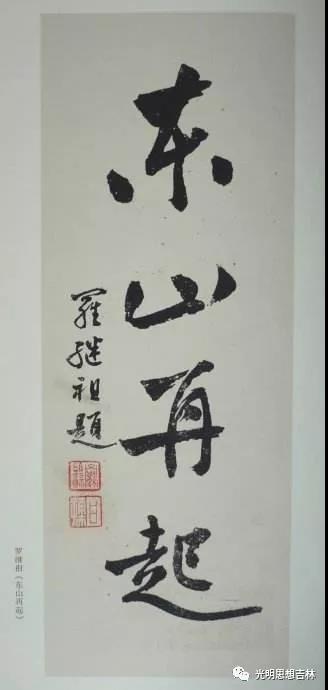 东山再起
羅继祖題
罗继祖《东山再起》
光明思想吉林